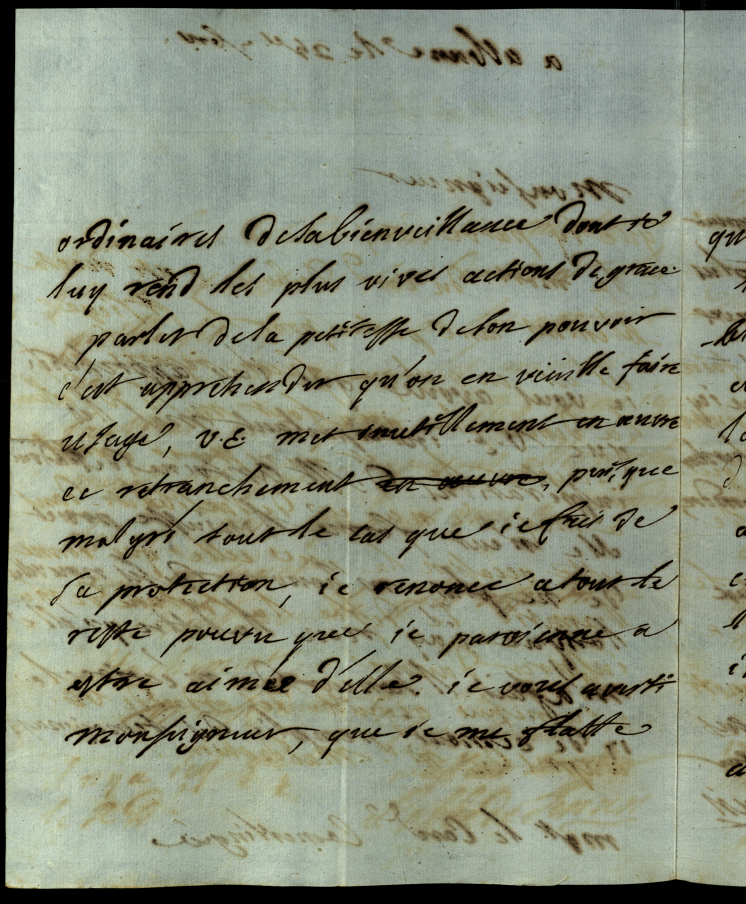 ordinaires de sa bienveillance dont ie
luy rend les plus vives actions de grace.
parler de la petitesse de son pouvoir
c'est apprehender qu'on en vueille faire
usage, v.E. met inutillement en œuvre
ce retranchement en œuvre, puisque
malgré tout le cas que ie fais de
sa protection, ie renonce a tout le
reste pourvu que ie parvienne a
estre aimée d'elle. ie vous averti
monseigneur, que ie me flatte